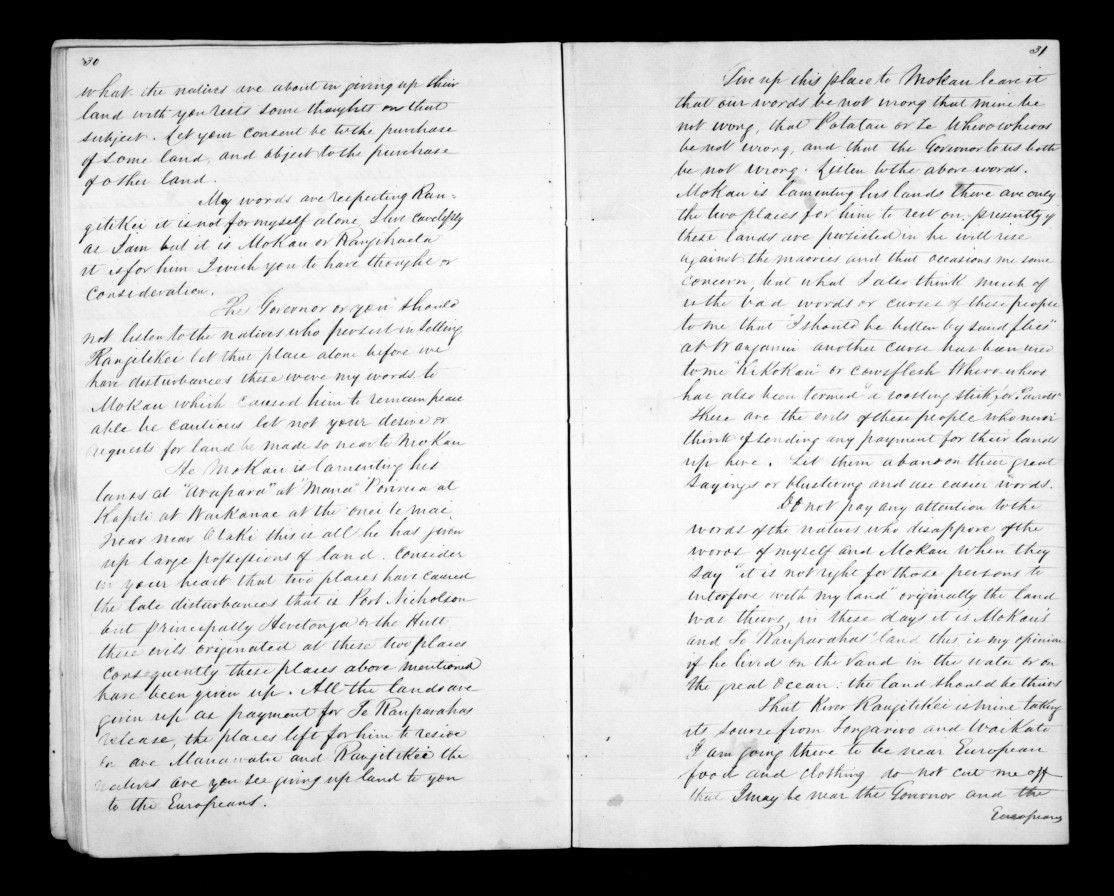 30
what the natives are about in giving up their
land with you rests some thoughts on that
subject. Let your consent be to the purchase
of some land, and object to the purchase
of other land.
My words are respecting Ran-
gitikei it is not for myself alone, I live carelessly
as I am but it is Mokau or Rangihaeata
it is for him I wish you to have thought or
consideration.
The Governor or you should
not listen to the natives who persist in selling
Rangitikei let that place alone before we
have disturbances these were my words to
Mokau which caused him to remain peace
able be cautious let not your desire or
requests for land be made so near to Mokau
Te Mokau is lamenting his
lands at "Arapaoa" at "Mana" Porirua at
Kapiti at Waikanae at the one
near near Otaki this is all he has given
up large possessions of land. Consider
in your heart that two places have caused
the late disturbances that is Port Nicholson
but principally Heretonga or the Hutt
these evils originated at these two places
consequently these places above mentioned
have been given up. All the lands are
given up as payment for Te Rauparahas
release, the places left for him to reside
on are Manawatu and Rangitikei the
natives are you see giving up land to you
to the Europeans.
31
Give up this place to Mokau leave it
that our words be not wrong that mine be
not wong, that Potatau or Te Wherowheros
be not wrong, and that the Governor to us both
be not wrong. Listen to the above words.
Mokau is lamenting his lands there are only
the two places for him to rest on, presently if
these lands are persisted in he will rise
against the maories and that occasions me some
concern, but what I also think much of
is the bad words or curses of these people
to me that "I should be bitten by sand flies"
at Wanganui another curse has been used
to me "Kikokau" or cowsflesh Whero-whero
has also been termed "a roasting stick, or Parrots"
These are the evils of these people who never
think of sending any payment for their lands
up here. Let them abandon their great
sayings or blustering and use easier words.
Do not pay any attention to the
words of the natives who disapprove of the
words of myself and Mokau when they
say "it is not right for those persons to
interfere with my land" originally the land
was theirs, in these days it is Mokau's
and Te Rauparahas' land this is my opinion
if he lived on the land in the water or on
the great Ocean: the land should be theirs
That River Rangitikei is mine taking
its source from Tongariro and Waikato
I am going there to be near European
food and clothing do not cut me off
that I may be near the Governor and the
Europeans